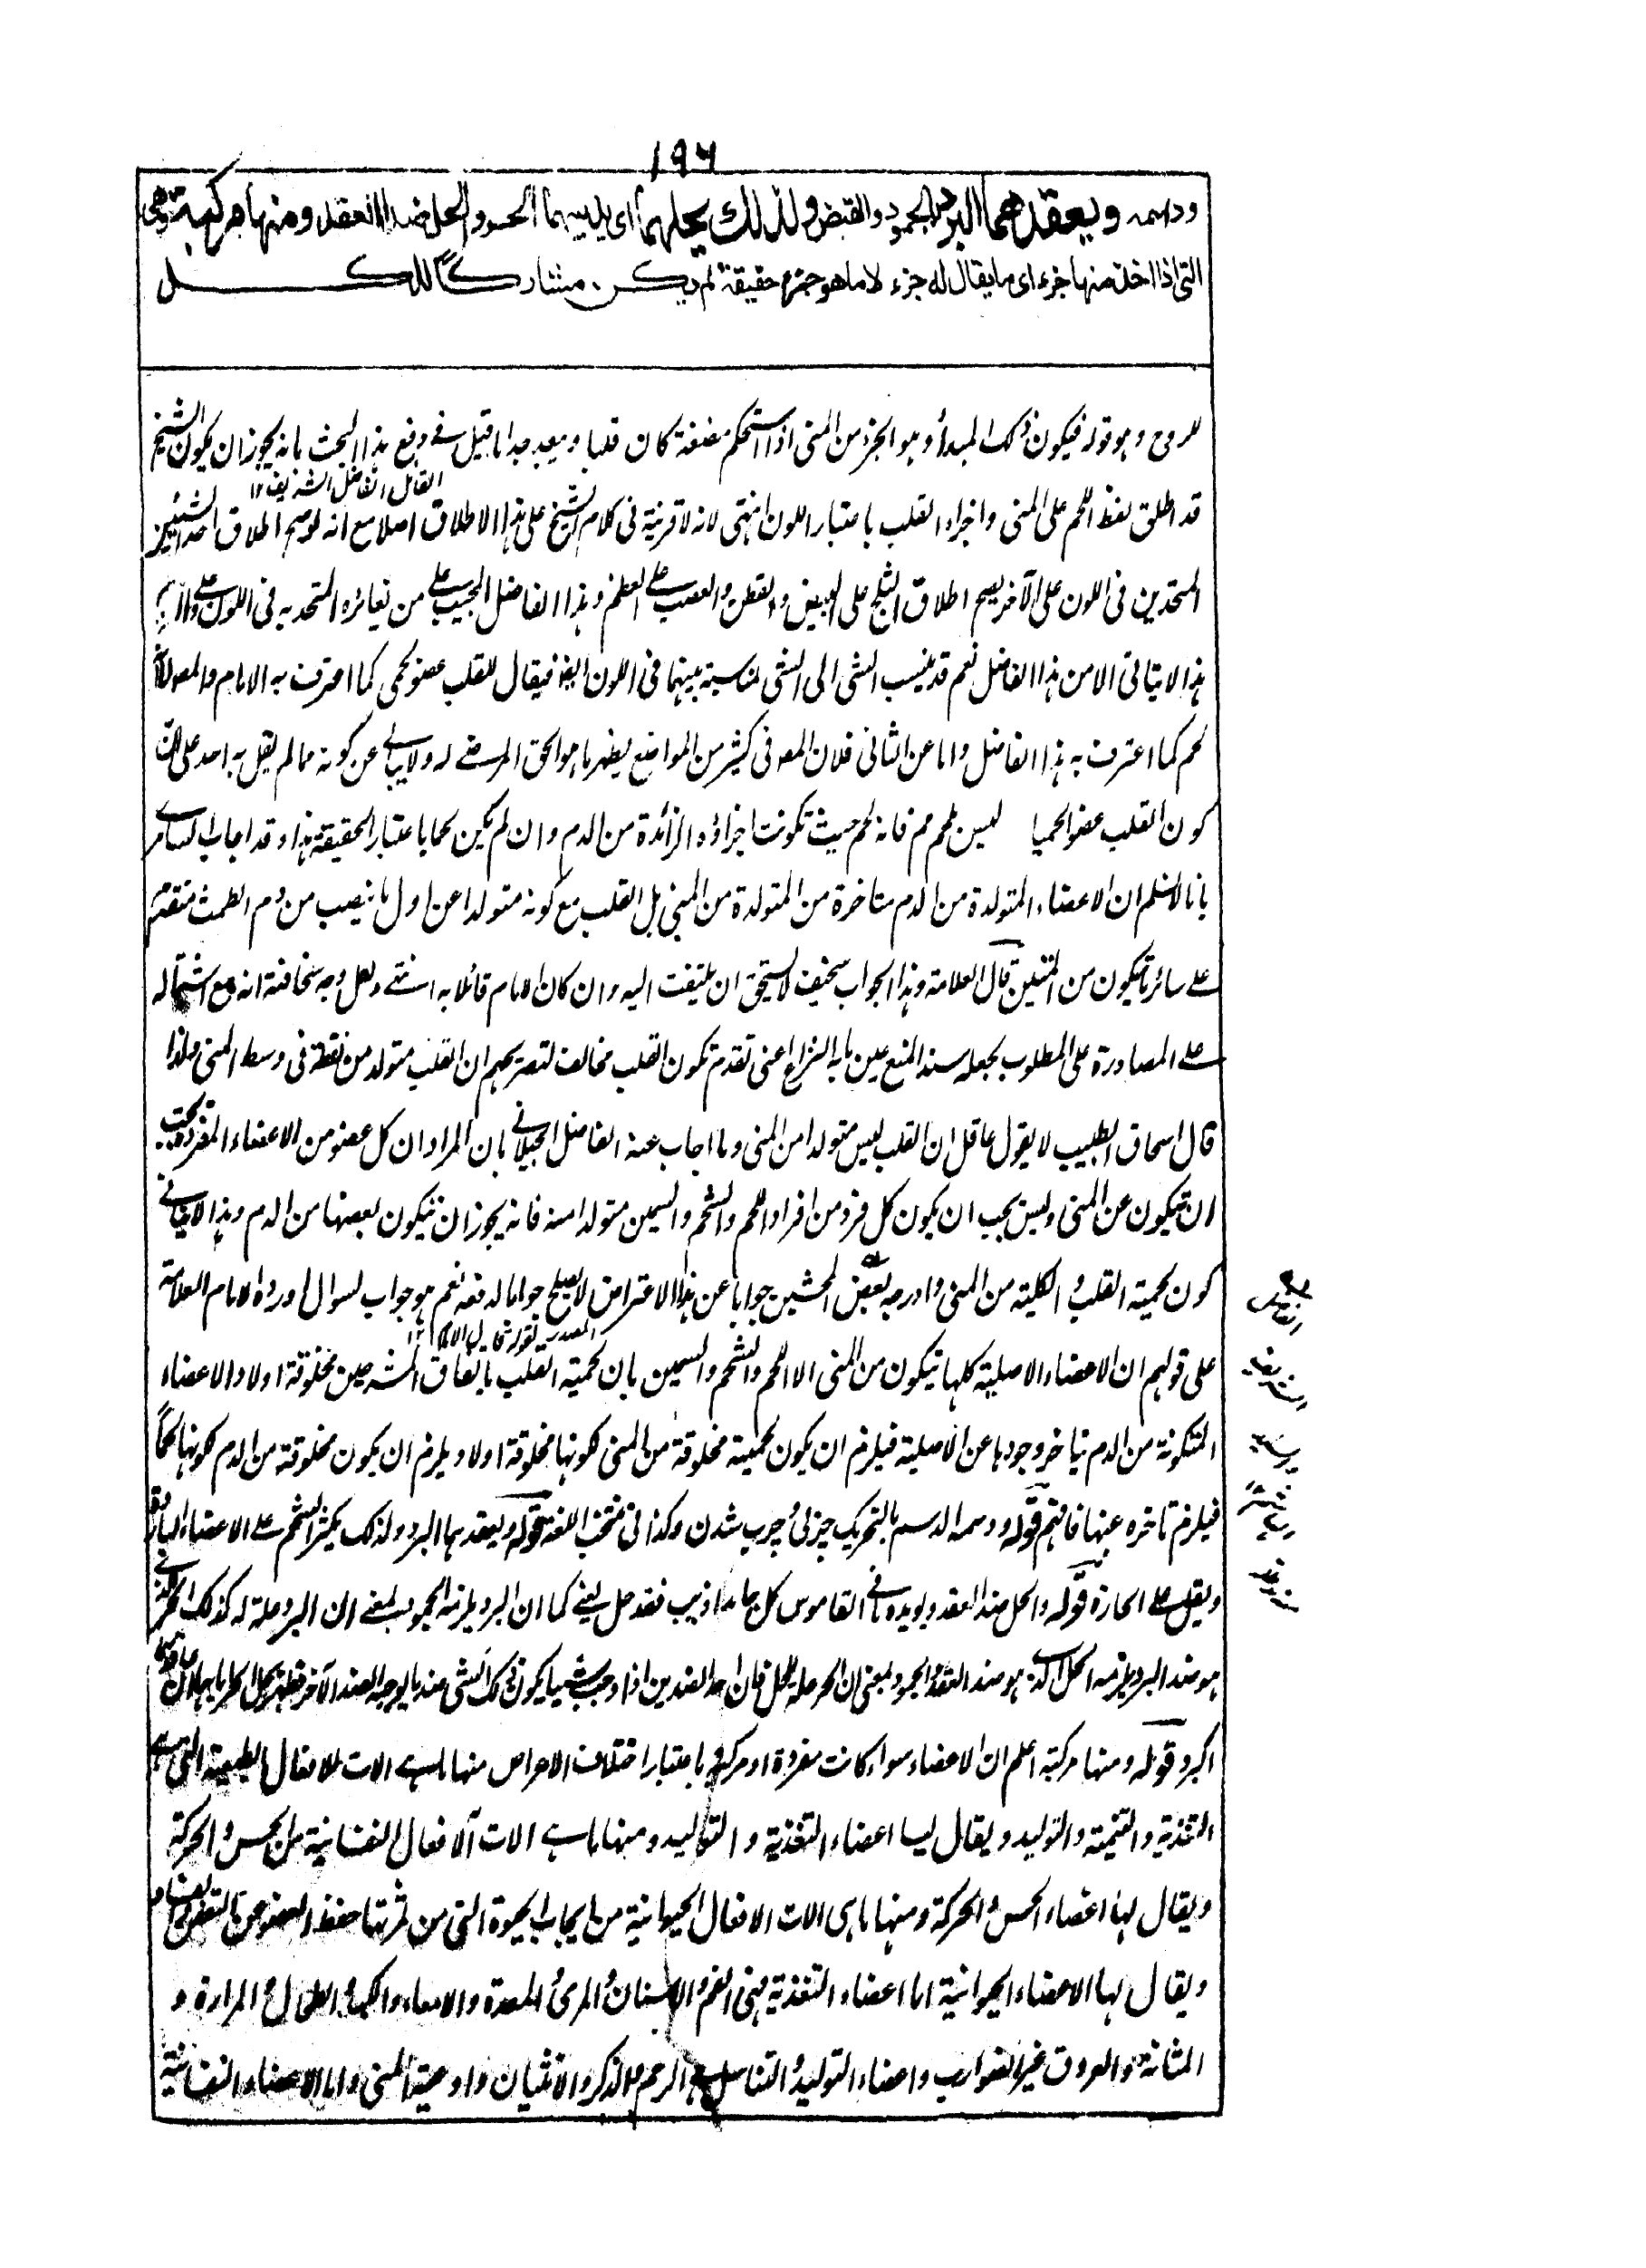 ١٩٦
ودسمه ويعقدهما البرد الجمود والقبض ولذلك يحلهما اى يليهما الحر والحل ضد العقد ومنها مركبة وهى
التى اذا اخذ منها جزء اى ما يقال له جزء لا ما هو جزء حقيقة لم يكن مشاركا للكل
للروح وهو قوله فيكون ذلك المبدأ وهو الجزء من المنى اذا استحكم مضغة كان قلبا وبعيد جدا ما قيل فى دفع هذا البحث بانه يجوز ان يكون الشيخ
القائل الفاضل الشريف ١٢
قد اطلق لفظ اللحم على المنى واجزاء القلب باعتبار اللون انتهى لانه لا قرينة فى كلام الشيخ على هذا الاطلاق اصلا مع انه لو صح اطلاق احد الشيئين
المتحدين فى اللون على الآخر يصح اطلاق الثلج على البيض والقطن والعصب على العظم وهذا الفاضل المجيب من المتحد به فى اللون
هذا لا يتاتى الا من هذا الفاضل نعم قد ينسب الشى الى الشى لمناسبة بينهما فى اللون ايضا فيقال للقلب عضو لحمى كما اعترف به الامام
لحم كما اعترف به هذا الفاضل واما عن الثانى فلان المص فى كثير من المواضع يظهر ما هو الحق المرضى له ولا يبالى عن كونه مما لم يقل به احد على ان
كون القلب عضوا لحميا ليس بلحم مم فانه لحم حيث تكونت اجزاؤه الزائدة من الدم وان لم يكن لحما باعتبار الحقيقة هذا وقد اجاب السامرى
بانا لا نسلم ان الاعضاء المتولدة من الدم متاخرة من المتولدة من المنى بل القلب مع كونه متولدا عن اول ما ينصب من دم الطمث متقدم
على سائر ما يتكون من المنيين قال العلامة وهذا الجواب سخيف لا يستحق ان يلتفت اليه وان كان الامام قائلا به انتهى ولعل وجه سخافته انه مع اشتماله
على المصادرة على المطلوب بجعله سند المنع عين ما به النزاع اعنى تقدم تكون القلب مخالف لتصريحهم ان القلب متولد من نقطة فى وسط المنى ولذا
قال اسحاق الطبيب لا يقول عاقل ان القلب ليس متولدا من المنى وما اجاب عنه الفاضل الجيلانى بان المراد ان كل عضو من الاعضاء المفردة يجب
ان يتكون عن المنى وليس يجب ان يكون كل فرد من افراد اللحم والشحم والسمين متولدا منه فانه يجوز ان يتكون بعضها من الدم وهذا لا ينافى
كون لحمية القلب والكلية من المنى وادرجه بعض المحشين جوابا عن هذا الاعتراض لا يصلح جوابا له فعه نعم هو جواب لسوال اورده الامام العلامة
على قولهم ان الاعضاء الاصلية كلها تتكون من المنى الا اللحم والشحم والسمين بان لحمية القلب باتفاق المشرحين مخلوقة اولا والاعضاء
المتكونة من الدم يتاخر وجودها عن الاصلية فيلزم ان يكون لحميته مخلوقة من المنى لكونها مخلوقة اولا ويلزم ان يكون مخلوقة من الدم لكونها لحما
فيلزم تاخره عنها فافهم قوله ودسمه الدسم بالتحريك چيزى چرب شدن وكذا فى منتخب اللغة قوله ويعقدهما البرد ولذلك يكثر الشحم على الاعضاء الباردة
ويقل على الحارة قوله والحل ضد العقد ويويده ما فى القاموس كل جامد اذيب فقد حل يعنى كما ان البرد يلزمه الجمود بمعنى ان البرد علة له كذلك الحر الذى
هو ضد البرد يلزمه الحل الذى هو ضد العقد والجمود بمعنى ان الحر علة للحل فان احد الضدين اذا اوجب شيئا يكون ذلك الشى عند ما يوجبه الضد الآخر
قوله ومنها مركبة اعلم ان الاعضاء سواء كانت مفردة او مركبة باعتبار اختلاف الاغراض منها ما هى الات للافعال الطبيعية التى هى
التغذية والتنمية والتوليد ويقال لها اعضاء التغذية والتوليد ومنها ما هى الات الافعال النفسانية من الحس والحركة
ويقال لها اعضاء الحس والحركة ومنها ما هى الات الافعال الحيوانية من ايجاب الحيوة التى من ثمرتها حفظ العضو عن التعفن
ويقال لها الاعضاء الحيوانية اما اعضاء التغذية فهى الفم والاسنان والمرئ والمعدة والامعاء والكبد والطحال والمرارة و
المثانة والعروق غير الضوارب واعضاء التوليد والتناسل هى الرحم والذكر والانثيان واوعية المنى واما الاعضاء النفسانية